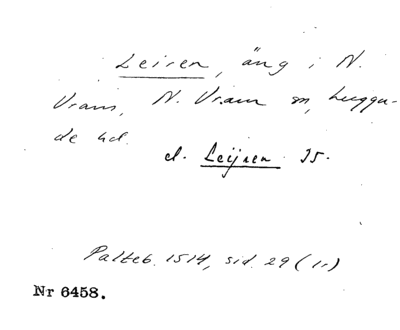 Leiren, äng i N.
Vram, N. Vram sn, Luggu-
de hd.
d. Leijren 35.
Palteb. 1514, sid. 29 (11)
Nr 6458.